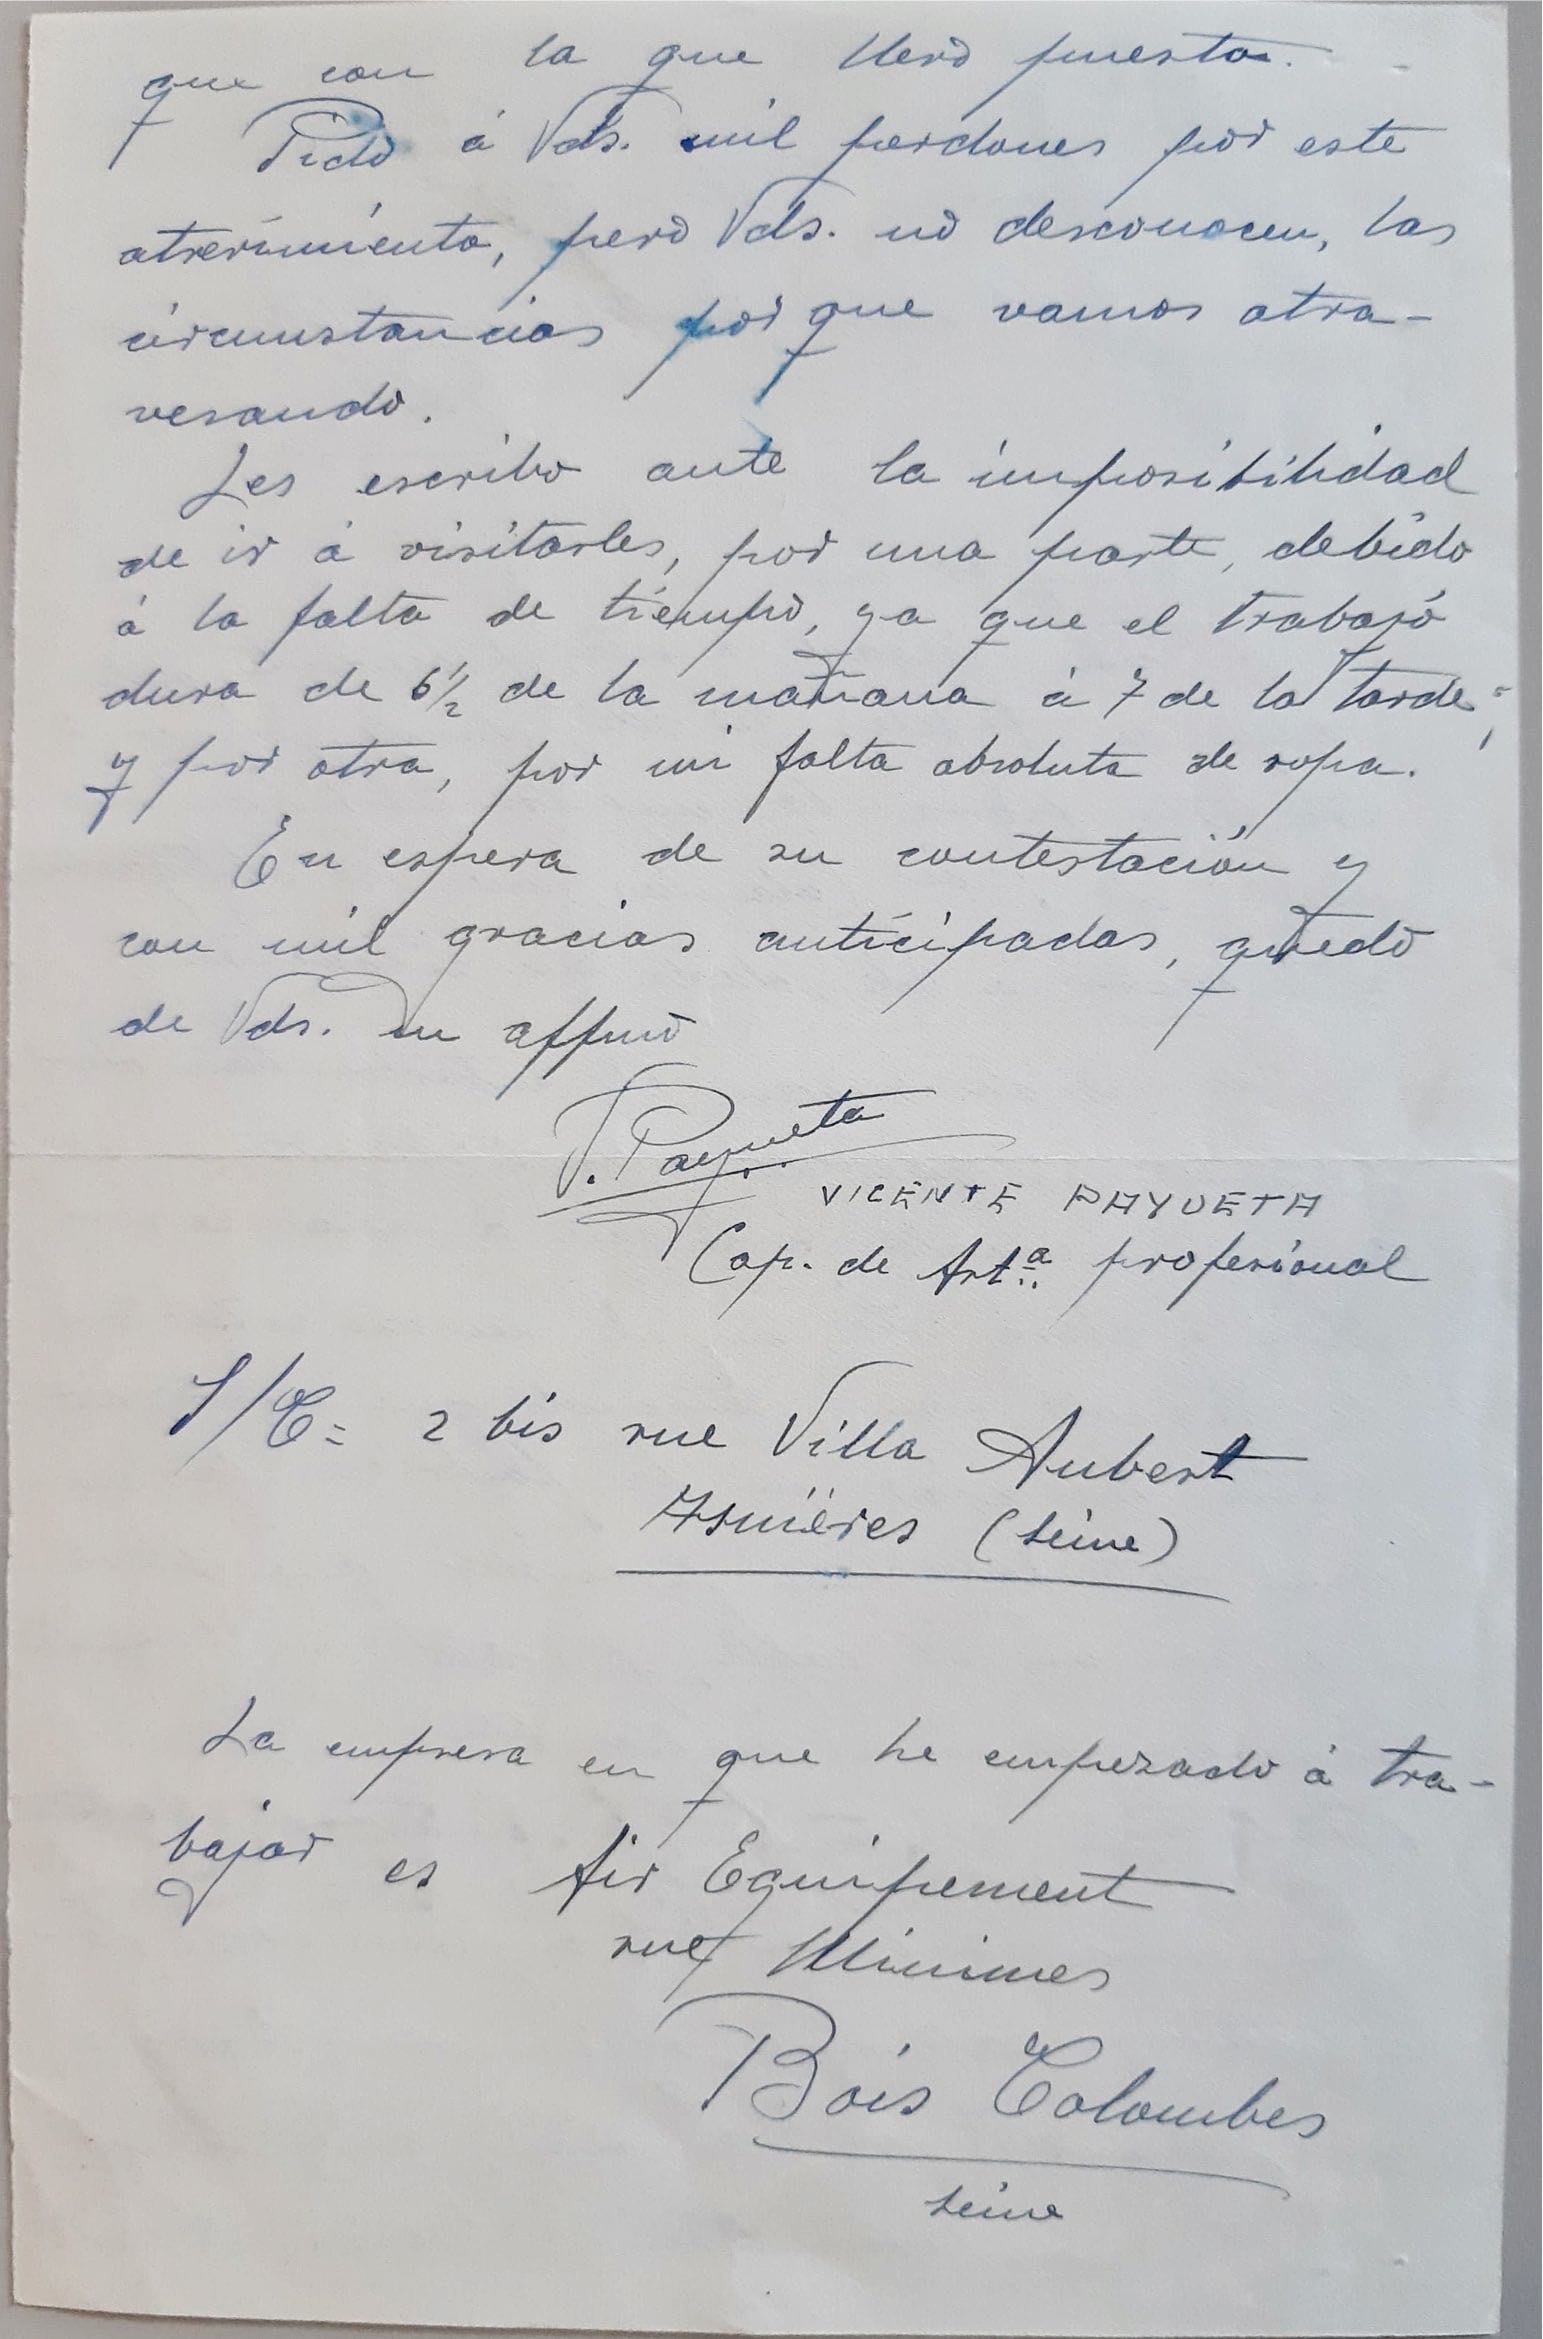 que con la que llevo puesta.
Pido á Vds. mil perdones por este
atrevimiento, pero Vds. no desconocen, las
circunstancias por que vamos atra-
vesando.
Les escribo ante la imposibilidad
de ir á visitarles, por una parte, debido
á la falta de tiempo, ya que el trabajo
dura de 6 1/2 de la mañana á 7 de la tarde;
y por otra, por mi falta absoluta de ropa.
En espera de su contestación y
con mil gracias anticipadas, quedo
de Vds. su affmo
V. Payueta
VICENTE PAYUETA
Cap. de Art.ª profesional
S/C= 2 bis rue Villa Aubert
Asnières (Seine)
La empresa en que he empezado á tra-
bajar es Air Equipement
rue Minimes
Bois Colombes
Seine